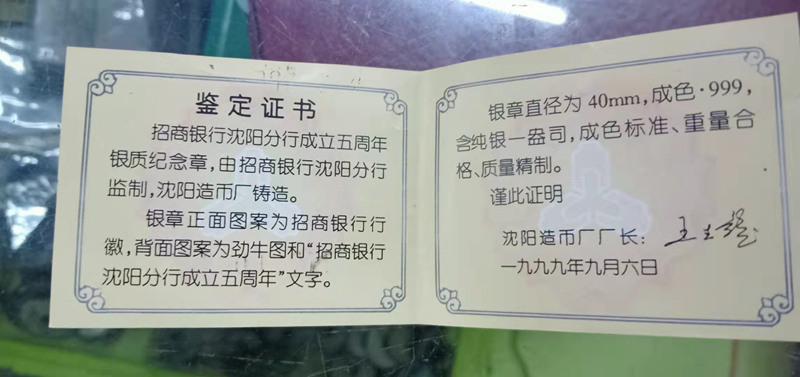 鉴定证书
招商银行沈阳分行成立五周年
银质纪念章，由招商银行沈阳分行
监制，沈阳造币厂铸造。
银章正面图案为招商银行行
徽，背面图案为劲牛图和“招商银行
沈阳分行成立五周年”文字。
银章直径为40mm，成色·999，
含纯银一盎司，成色标准、重量合
格、质量精制。
谨此证明
沈阳造币厂厂长：
一九九九年九月六日